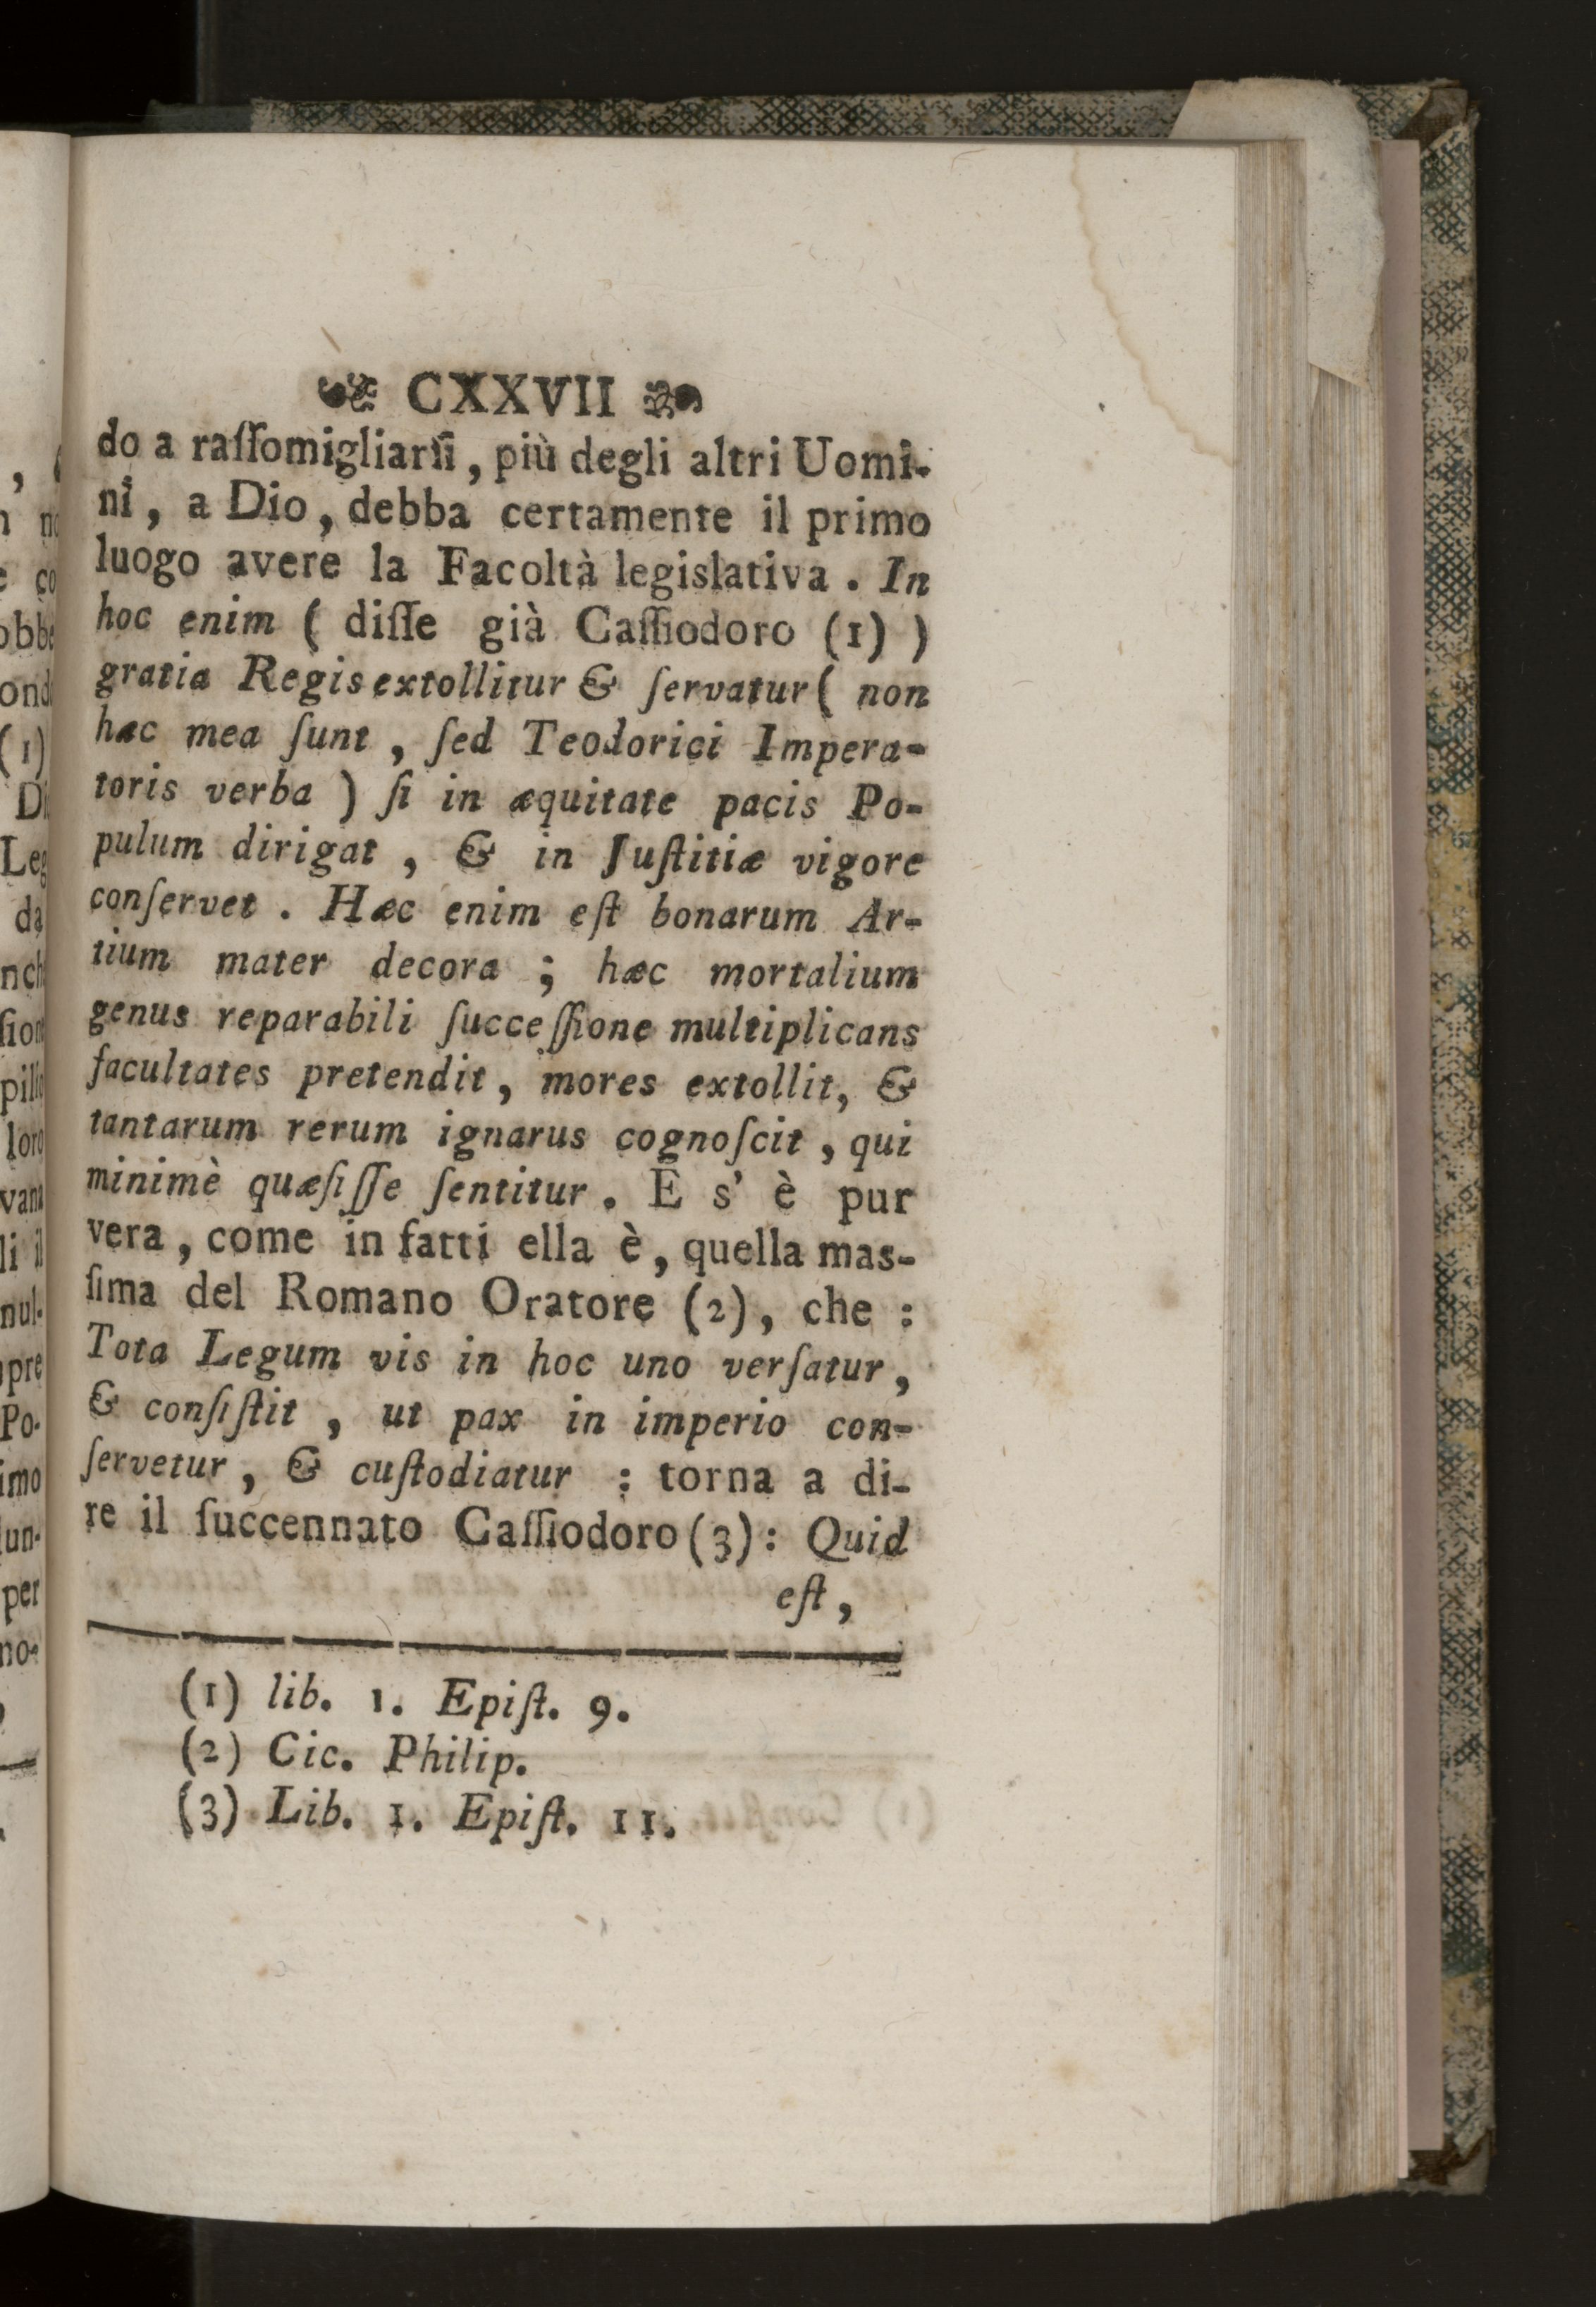 CXXVII
do a raſſomigliarſi, più degli altri Uomi-
ni, a Dio, debba certamente il primo
luogo avere la Facoltà legislativa. In
hoc enim ( diſſe già Caſſiodoro (1) )
gratia Regis extollitur & ſervatur ( non
hæc mea ſunt, ſed Teodorici Impera-
toris verba ) ſi in æquitate pacis Po-
pulum dirigat, & in Juſtitiæ vigore
conſervet. Hæc enim eſt bonarum Ar-
tium mater decora; hæc mortalium
genus reparabili ſucceſſione multiplicans
facultates pretendit, mores extollit, &
tantarum rerum ignarus cognoſcit, qui
minimè quæſiſſe ſentitur. E s' è pur
vera, come in fatti ella è, quella mas-
ſima del Romano Oratore (2), che:
Tota Legum vis in hoc uno verſatur,
& conſiſtit, ut pax in imperio con-
ſervetur, & cuſtodiatur: torna a di-
re il ſuccennato Caſſiodoro (3): Quid
eſt,
(1) lib. 1. Epiſt. 9.
(2) Cic. Philip.
(3) Lib. 1. Epiſt. 11.